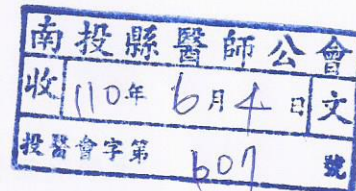 南投縣醫師公會
收 110年 6月4日 文
投醫會字第 607 號